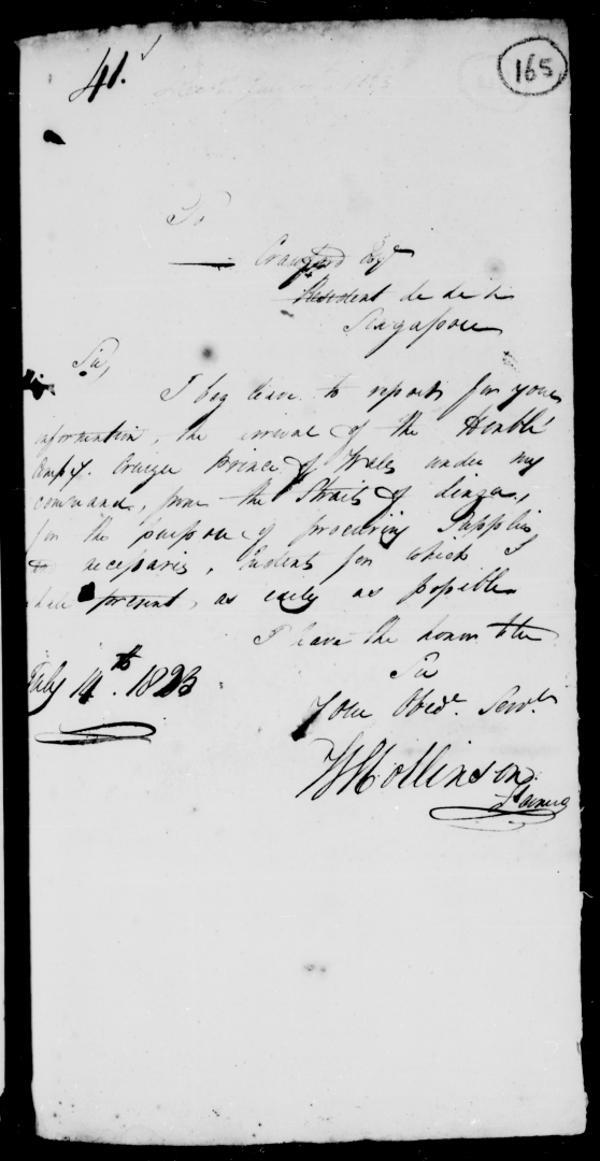 41.
165
To
Crawford Esqr
Resident &c &c &c
Singapore
Sir,
I beg leave to report for your
information, the arrival of the Honble
Compy. Cruizer Prince of Wales under my
command, from the Straits of Linga,
for the purpose of procuring Supplies
necessaries, Indents for which I
shall present, as early as possible
I have the honor to be
Sir
Your Obedt. Servt.
July 14th. 1823
Collinson